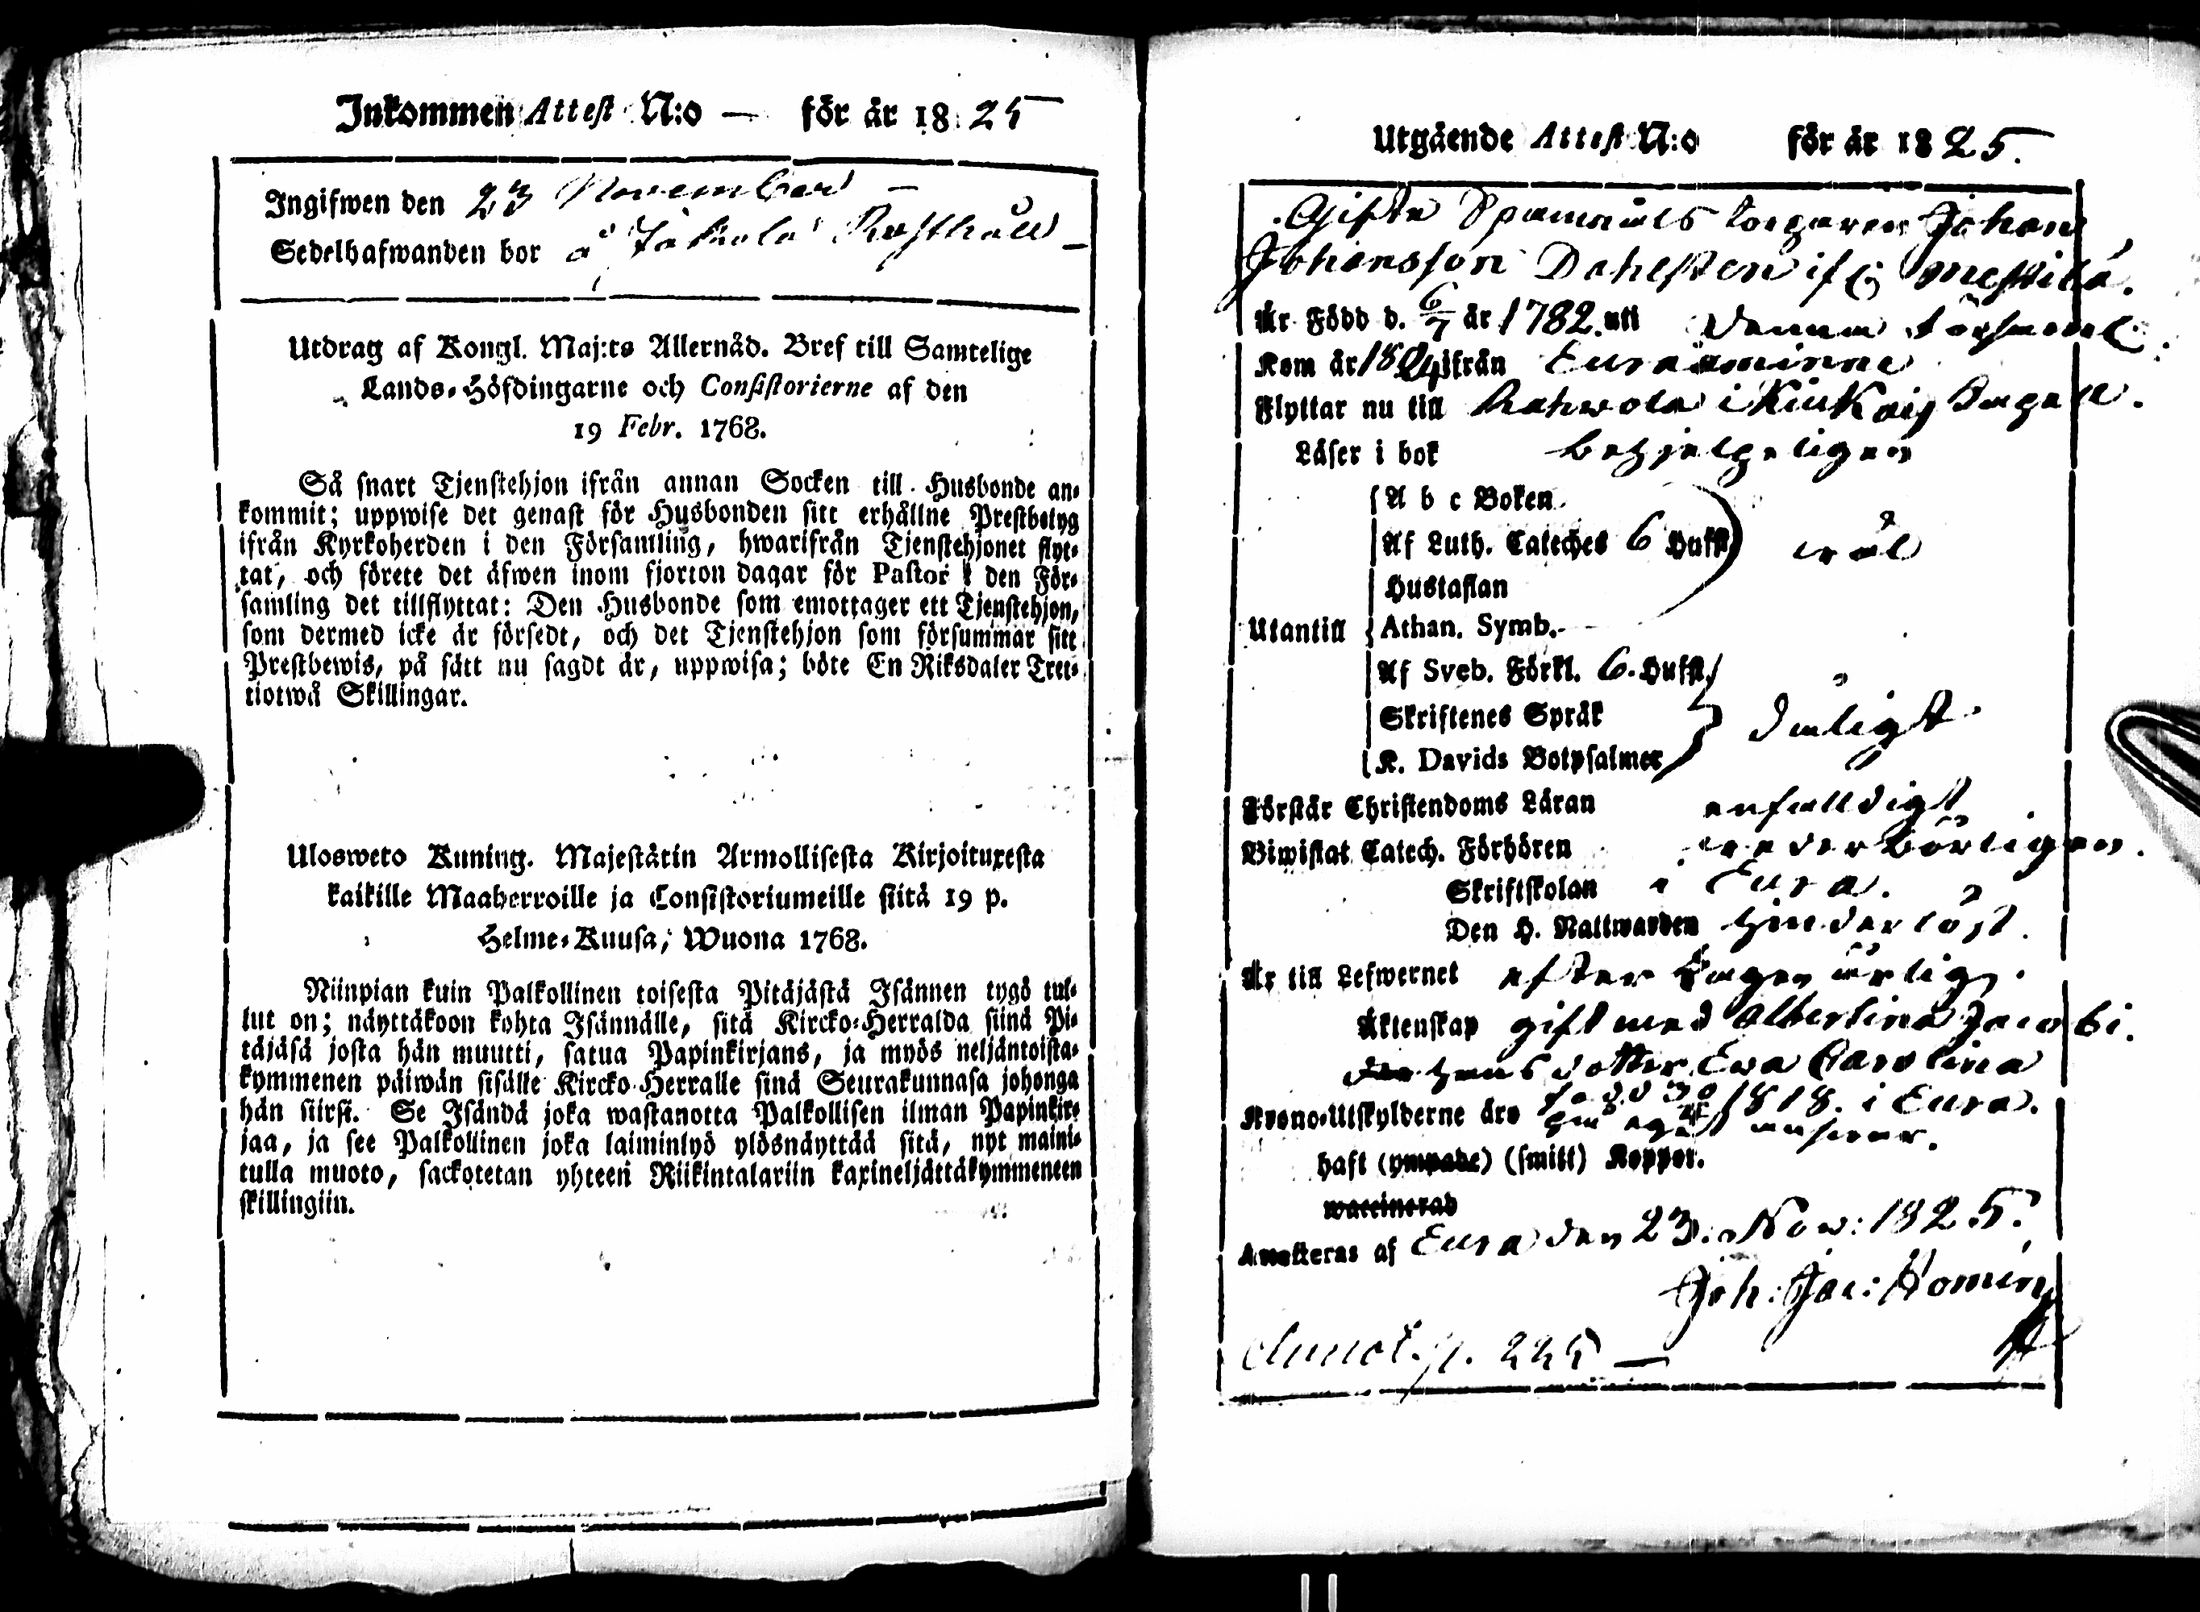 Inkommen Attest N:o — för år 1825
Ingifwen den 23 November –
Sedelhafwanden bor å Rusthåll –
Utdrag af Kongl. Maj:ts Allernåd. Bref till Samtelige
Lands-Höfdingarne och Consistorierne af den
19 Febr. 1768.
Så snart Tjenstehjon ifrån annan Socken till Husbonde an-
kommit; uppwise det genast för Husbonden sitt erhållne Prestbetyg
ifrån Kyrkoherden i den Församling, hwarifrån Tjenstehjonet flyt-
tat, och förete det äfwen inom fjorton dagar för Pastor i den För-
samling det tillflyttat: Den Husbonde som emottager ett Tjenstehjon,
som dermed icke är försedt, och det Tjenstehjon som försummar sitt
Prestbewis, på sätt nu sagdt är, uppwisa; böte En Riksdaler Tret-
tiotwå Skillingar.
Ulosweto Kuning. Majestätin Armollisesta Kirjoituxesta
kaikille Maaherroille ja Consistoriumeille siitä 19 p.
Helme-Kuusa, Wuona 1768.
Niinpian kuin Palkollinen toisesta Pitäjästä Isännen tygö tul-
lut on; näyttäkoon kohta Isännälle, sitä Kircko-Herralda siinä Pi-
täjäsä josta hän muutti, saatua Papinkirjans, ja myös neljäntoista-
kymmenen päiwän sisälle Kircko-Herralle siinä Seurakunnasa johonga
hän siirsi. Se Isändä joka wastanotta Palkollisen ilman Papinkir-
jaa, ja see Palkollinen joka laiminlyö ylösnäyttää sitä, nyt maini-
tulla muoto, sackotetan yhteen Riikintalariin kaxineljättäkymmeneen
skillingiin.
Utgående Attest N:o för år 1825.
Gifte Johan
Johansson Dahlsten
Är Född d. 6/7 år 1782. uti denna församl:
Kom år 1824 ifrån Euraåminne
Flyttar nu till i Kiukais Capell.
Läser i bok behjelpeligen
A b c Boken
Af Luth. Cateches 6 Hufst. wäl
Hustaflan
Utantill Athan. Symb.
Af Sveb. Förkl. 6. Hufst.
Skriftenes Språk dåligt
K. Davids Botpsalmer
Förstår Christendoms Läran enfalldigt
Biwistat Catech. Förhören wederbörligen.
Skriftskolan i Eura.
Den H. Nattwarden hinderlöst.
Är till Lefwernet efter ärlig.
Äktenskap gift med Albertina Jacobi.
hans dotter Ewa Carolina
Krono-Utskylderne äro född 30 1818. i Eura.
haft (ympade) (smitt) Koppor.
waccinerad
Attesteras af Eura den 23. Nov: 1825.
Joh: Jac: Homén
Annot. p. 225 —